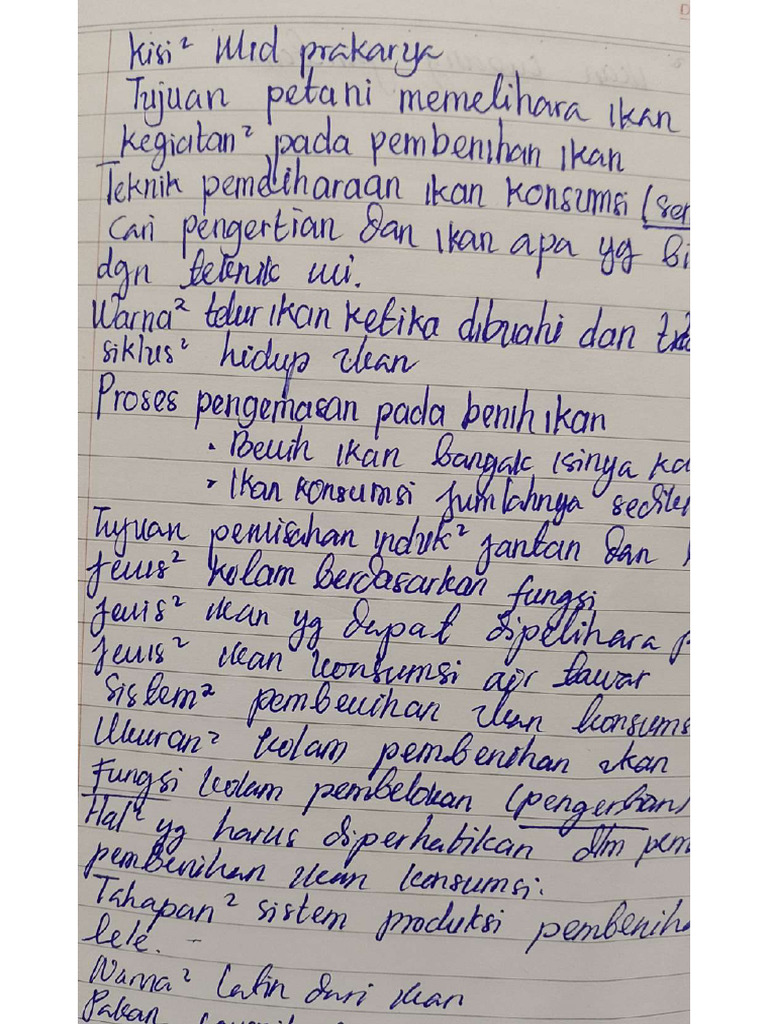 Kisi² Mid prakarya
Tujuan petani memelihara ikan
kegiatan² pada pembenihan ikan
Teknik pemeliharaan ikan konsumsi (se
Cari pengertian dan ikan apa yg bi
dgn teknik ini.
Warna² telur ikan ketika dibuahi dan
siklus² hidup ikan
Proses pengemasan pada benih ikan
• Benih ikan banyak isinya ka
• Ikan konsumsi jumlahnya sedik
Tujuan pemisahan induk² jantan dan
Jenis² kolam berdasarkan fungsi
Jenis² ikan yg dapat dipelihara p
Jenis² ikan konsumsi air tawar
Sistem² pembenihan ikan konsums
Ukuran² kolam pembenihan ikan
Fungsi kolam pembelokan (pengertian)
Hal² yg harus diperhatikan dlm pem
pembenihan ikan konsumsi.
Tahapan² sistem produksi pembenih
lele. -
Nama² latin dari ikan
Pakan